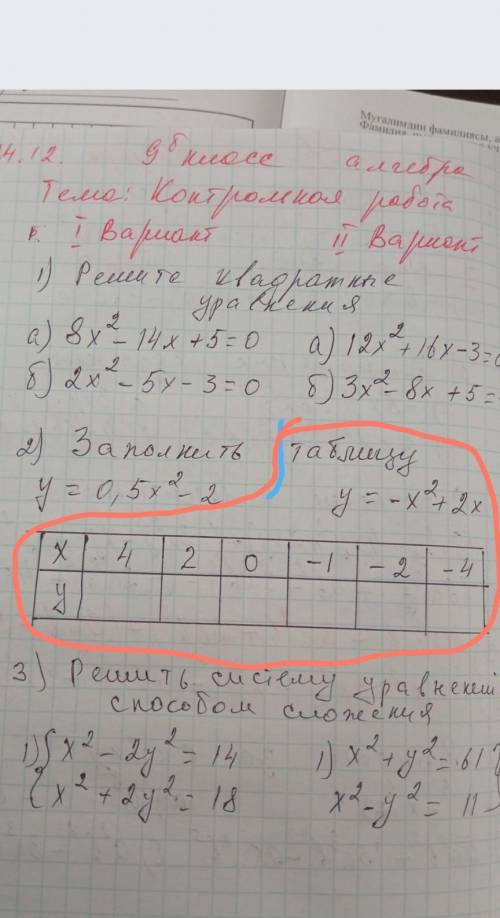 Мугалимдин фамилиясы,
4.12. 9б класс алгебра
Тема: Контрольная работа
I Вариант II Вариант
1) Решите квадратные
уравнения
а) 8x² - 14x + 5 = 0 а) 12x² + 16x - 3 = 0
б) 2x² - 5x - 3 = 0 б) 3x² - 8x + 5 =
2) Заполнить таблицу
y = 0,5x² - 2 y = -x² + 2x
x 4 2 0 -1 -2 -4
y
3) Решить систему уравнений
способом сложения
1) { x² - 2y² = 14 1) x² + y² = 61 }
{ x² + 2y² = 18 x² - y² = 11 }